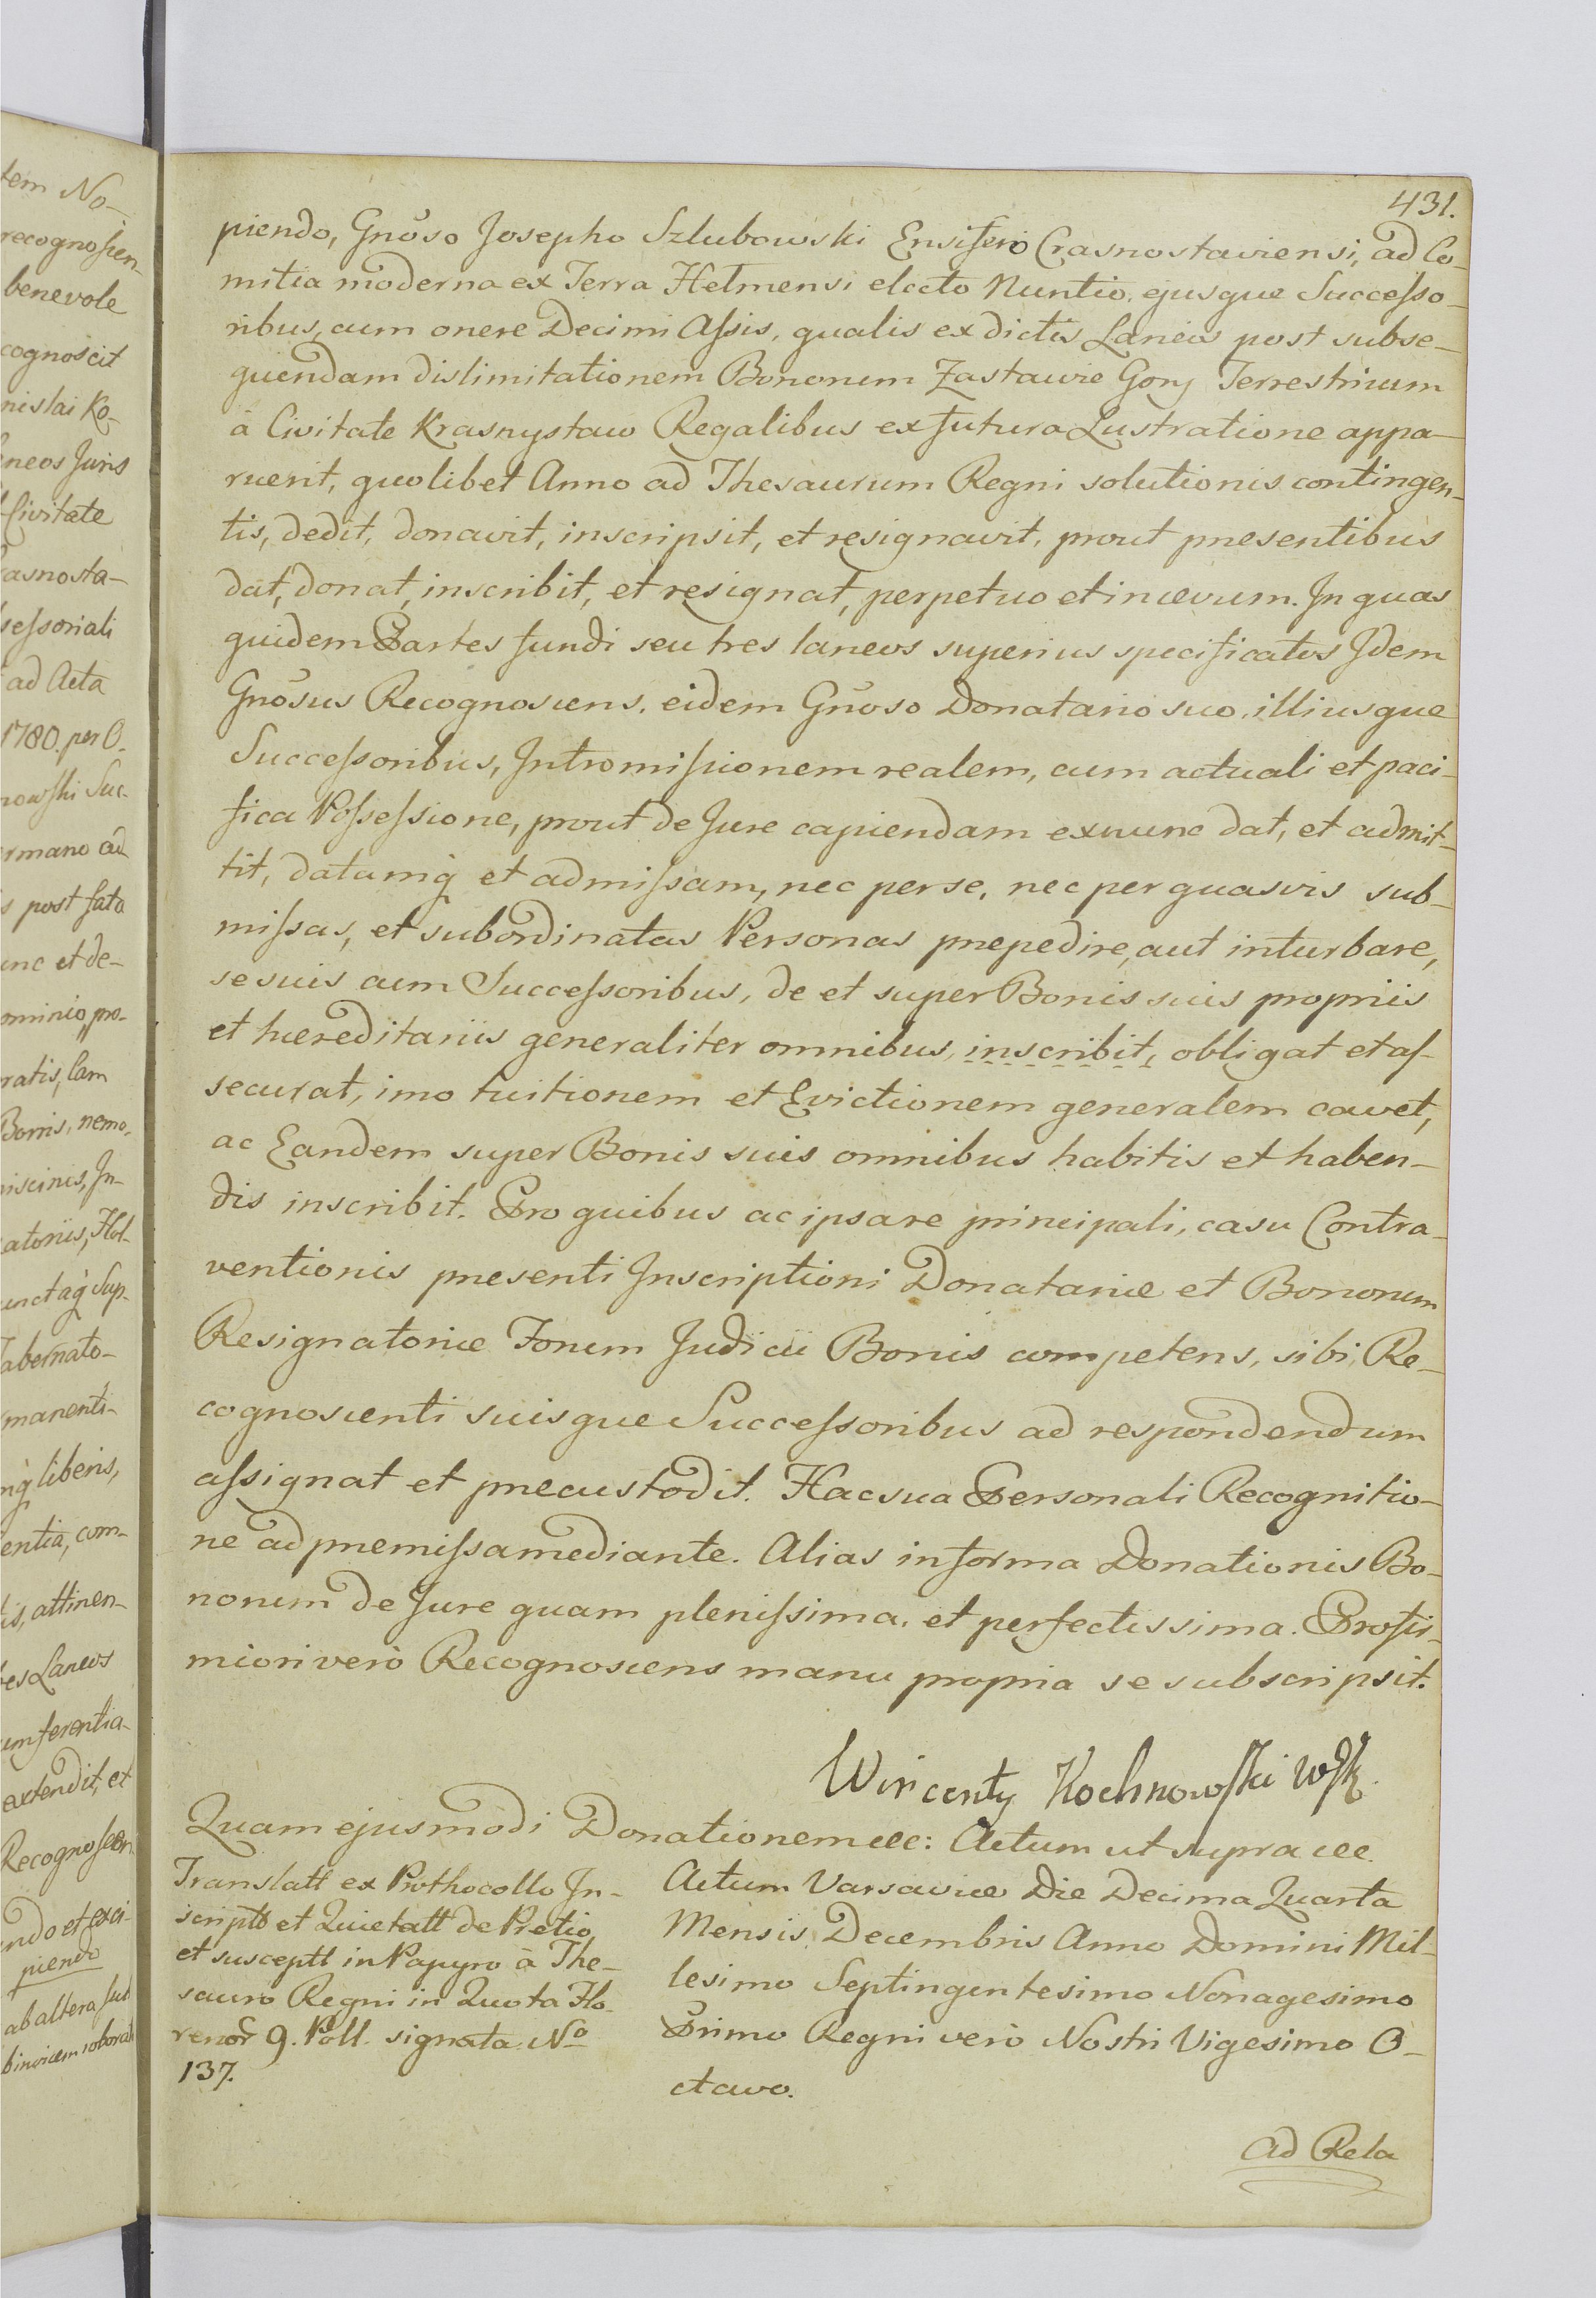 431.
piendo, Gnõso Josepho Szlubowski Ensifero Crasnostaviensi, ad Co-
mitia moderna ex Terra Helmensi electo Nuntio, ejusque Successo-
ribus, cum onere Decimi Assis, qualis ex dictis Laneis post subse-
quendam dislimitationem Bonorum Zastawie Gory Terrestrium
à Civitate Krasnystaw Regalibus ex futura Lustratione appa-
ruerit, quolibet Anno ad Thesaurum Regni solutionis contingen-
tis, dedit, donavit, inscripsit, et resignavit, prout presentibus
dat, donat, inscribit, et resignat, perpetuo et in ævum. In quas
quidem Partes fundi seu tres laneos superius specificatos Idem
Gnõsus Recognoscens, eidem Gnõso Donatario suo, illiusque
Successoribus, Intromissionem realem, cum actuali et paci-
fica Possessione, prout de Jure capiendam exnunc dat, et admit-
tit, datamq̀ et admissam, nec per se, nec per quasvis sub-
missas, et subordinatas Personas præpedire, aut inturbare,
se suis cum Successoribus, de et super Bonis suis propriis
et hæreditariis generaliter omnibus, inscribit, obligat et as-
securat, imo tuitionem et Evictionem generalem cavet,
ac Eandem super Bonis suis omnibus habitis et haben-
dis inscribit. Pro quibus ac ipsa re principali, casu Contra-
ventionis presenti Inscriptioni Donatariæ et Bonorum
Resignatoriæ Forum Judicii Bonis competens, sibi, Re-
cognoscenti suisque Successoribus ad respondendum
assignat et præcustodit. Hac sua Personali Recognitio-
ne ad præmissa mediante. Alias in forma Donationis Bo-
norum de Jure quam plenissima, et perfectissima. Pro fir-
miori verò Recognoscens manu propria se subscripsit.
Wincenty Kochnowski WSK.
Quam ejusmodi Donationem etc: Actum ut supra etc.
Translatt ex Prothocollo In-
scriptt et Quietatt de Pretio
et susceptt in Papyro à The-
sauro Regni in Quota Flo-
renor 9. Poll. signata No
137.
Actum Varsaviæ Die Decima Quarta
Mensis Decembris Anno Domini Mil-
lesimo Septingentesimo Nonagesimo
Primo Regni verò Nostri Vigesimo O-
ctavo.
Ad Rela
tem No-
recognoscen-
benevole
cognoscit
nislai Ko-
laneos Juris
Civitate
rasnosta-
sessoriali
ad Acta
1780. per O.
nowski Suc-
ermano ad
s post fata
unc et de-
ominio, pro-
ratis, lam
Bonis, nemo-
piscinis, In-
atoriis, Hol-
unctaq̀ Sup-
Tabernato-
manenti-
mq̀ liberis,
entia, com-
tis, attinen-
tres Laneos
umferentia-
extendit, et
Recognoscen
ndo et exci-
piendo
ab altera sub
binvicem roborat